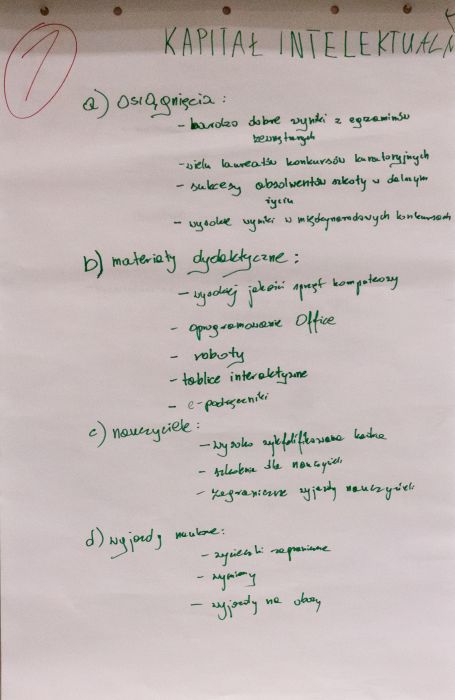 1
KAPITAŁ INTELEKTUALN
a) OSIĄgnięcia :
- bardzo dobre wyniki z egzaminów
zewnętrznych
- wielu laureatów konkursów kuratoryjnych
- sukcesy absolwentów szkoły w dalszym
życiu
- wysokie wyniki w międzynarodowych konkursach
b) materiały dydaktyczne :
- wysokiej jakości sprzęt komputerowy
- oprogramowanie Office
- roboty
- tablice interaktywne
- e-podręczniki
c) nauczyciele :
- wysoko wykwalifikowana kadra
- szkolenia dla nauczycieli
- zagraniczne wyjazdy nauczycieli
d) wyjazdy naukowe :
- wycieczki zagraniczne
- wymiany
- wyjazdy na obozy